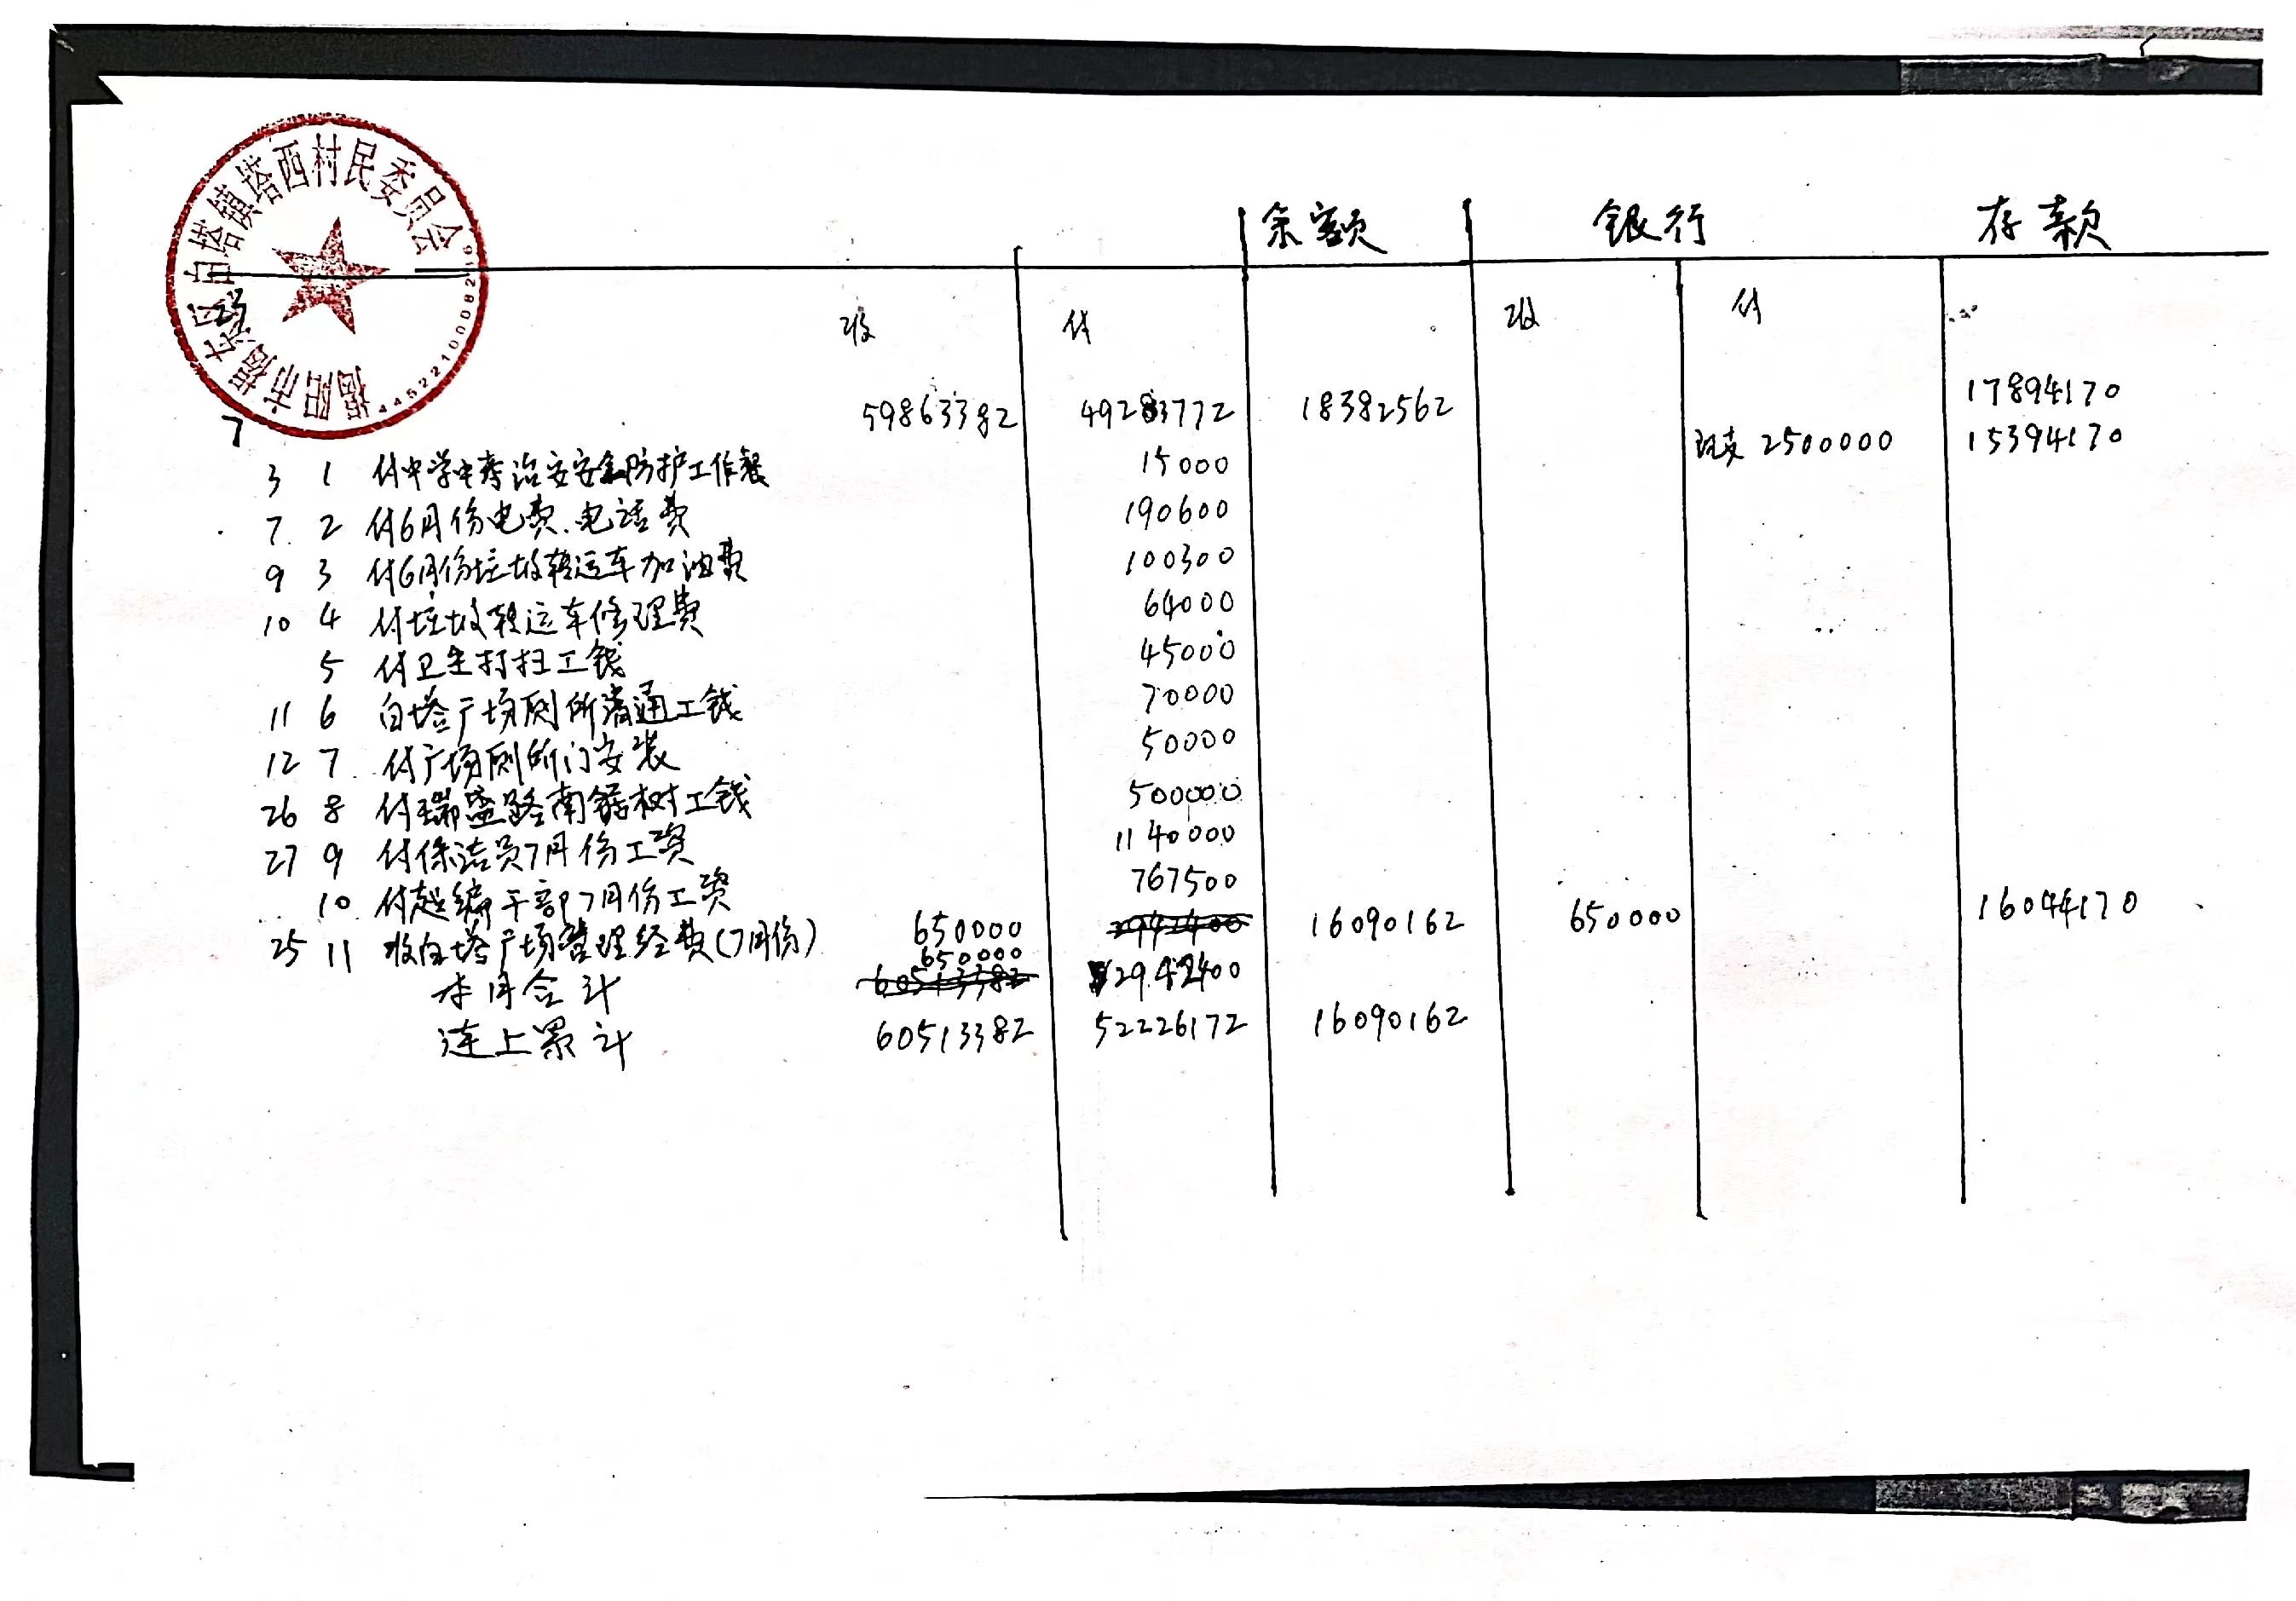 揭阳市揭东区白塔镇塔西村民委员会
4452210008216
余额 银行 存款
23
收 付 收 付
7 59863382 49283772 18382562 17894170
3 1 付中学中考治安安全防护工作餐 15000 现支 2500000 15394170
7 2 付6月份电费.电话费 190600
9 3 付6月份垃圾转运车加油费 100300
10 4 付垃圾转运车修理费 64000
5 付卫生打扫工钱 45000
11 6 白塔广场厕所清通工钱 70000
12 7 付广场厕所门安装 50000
26 8 付瑞盛路南锯树工钱 500000
27 9 付保洁员7月份工资 1140000
10 付超编干部7月份工资 767500
25 11 收白塔广场管理经费(7月份) 650000 2942400 16090162 650000 16044170
650000
本月合计 60513382 2942400
连上累计 60513382 52226172 16090162